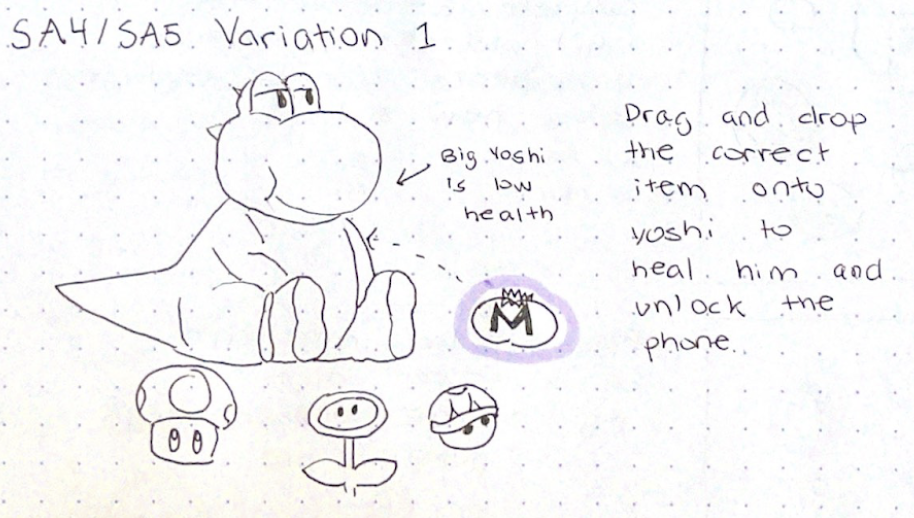 SA4/SA5 Variation 1
Big Yoshi
is low
health
Drag and drop
the correct
item onto
yoshi to
heal him and
unlock the
phone.
M